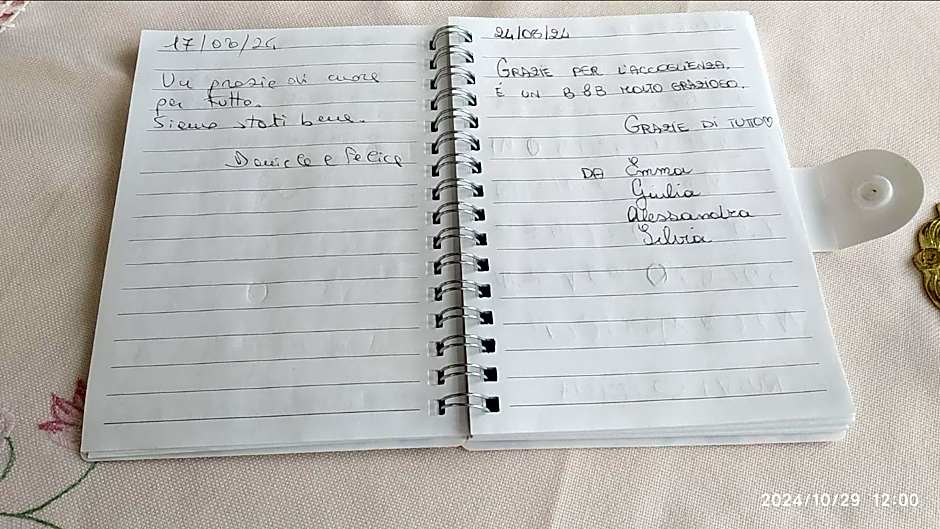 17/08/24
Un grazie di cuore
per tutto.
Siamo stati bene.
Daniele e Felice
24/08/24
GRAZIE PER L'ACCOGLIENZA.
É UN B&B MOLTO GRAZIOSO.
GRAZIE DI TUTTO♡
DA Emma
Giulia
Alessandra
Silvia
♡
2024/10/29 12:00